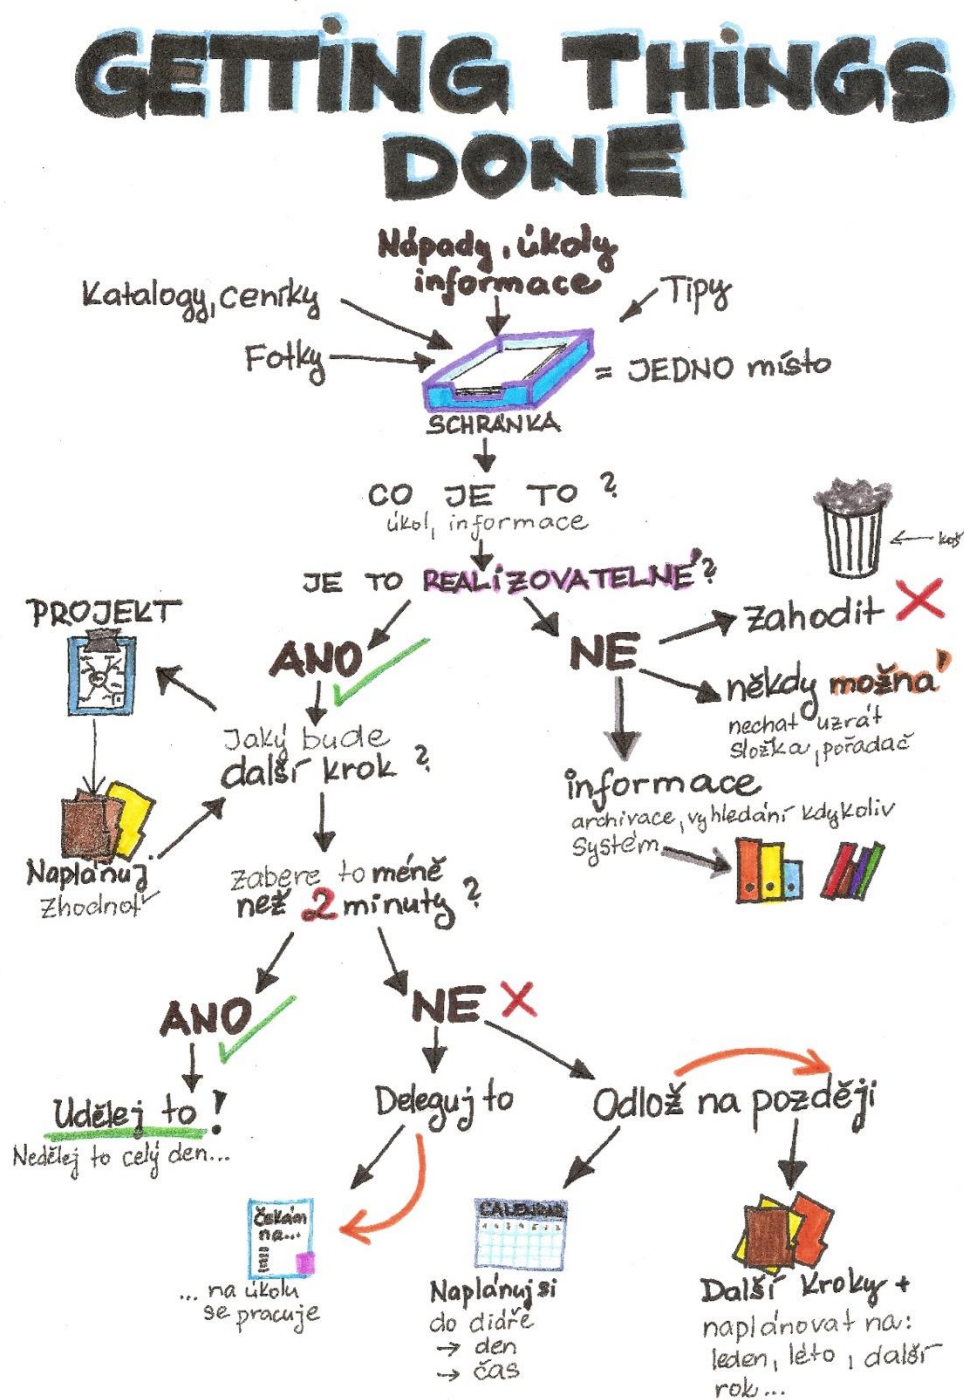 GETTING THINGS
DONE
Nápady, úkoly
informace
Katalogy, ceníky
Tipy
Fotky
= JEDNO místo
SCHRÁNKA
CO JE TO ?
úkol, informace
← koš
JE TO REALIZOVATELNÉ ?
PROJEKT
ANO
NE
zahodit
někdy možná
nechat uzrát
složka, pořadač
Jaký bude
další krok ?
informace
archivace, vyhledání kdykoliv
systém
Naplánuj
Zhodnoť
zabere to méně
než 2 minuty ?
ANO
NE
Udělej to !
Nedělej to celý den...
Deleguj to
Odlož na později
Čekám
na...
... na úkolu
se pracuje
CALENDAR
Naplánuj si
do diáře
→ den
→ čas
Další kroky +
naplánovat na:
leden, léto, další
rok...